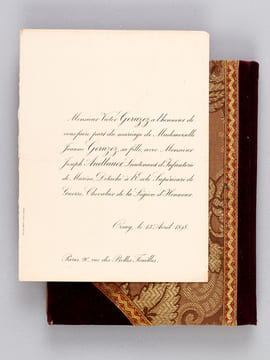 Monsieur Victor Geruzez a l'honneur de
vous faire part du mariage de Mademoiselle
Jeanne Geruzez, sa fille, avec Monsieur
Joseph Audlauer Lieutenant d'Infanterie
de Marine, Détaché à l'École Supérieure de
Guerre, Chevalier de la Légion d'Honneur.
le 13 Avril 1898
Paris, rue des Belles Feuilles.